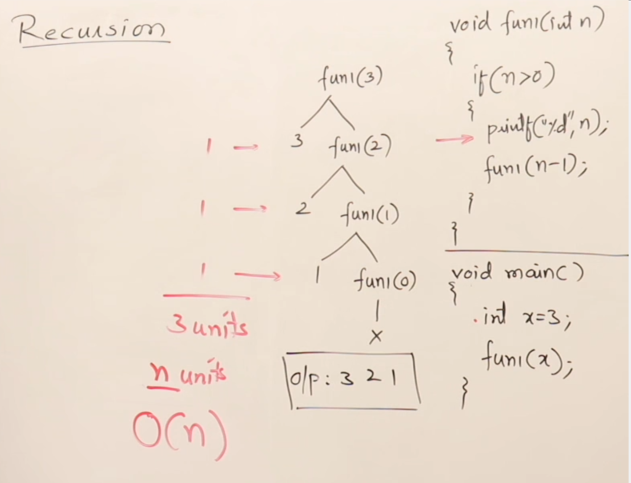 Recursion
fun1(3)
1 → 3 fun1(2)
1 → 2 fun1(1)
1 → 1 fun1(0)
x
3 units
n units
O(n)
o/p: 3 2 1
void fun1(int n)
{
if(n>0)
{
→ printf("%d", n);
fun1(n-1);
}
}
void main()
{
int x=3;
fun1(x);
}